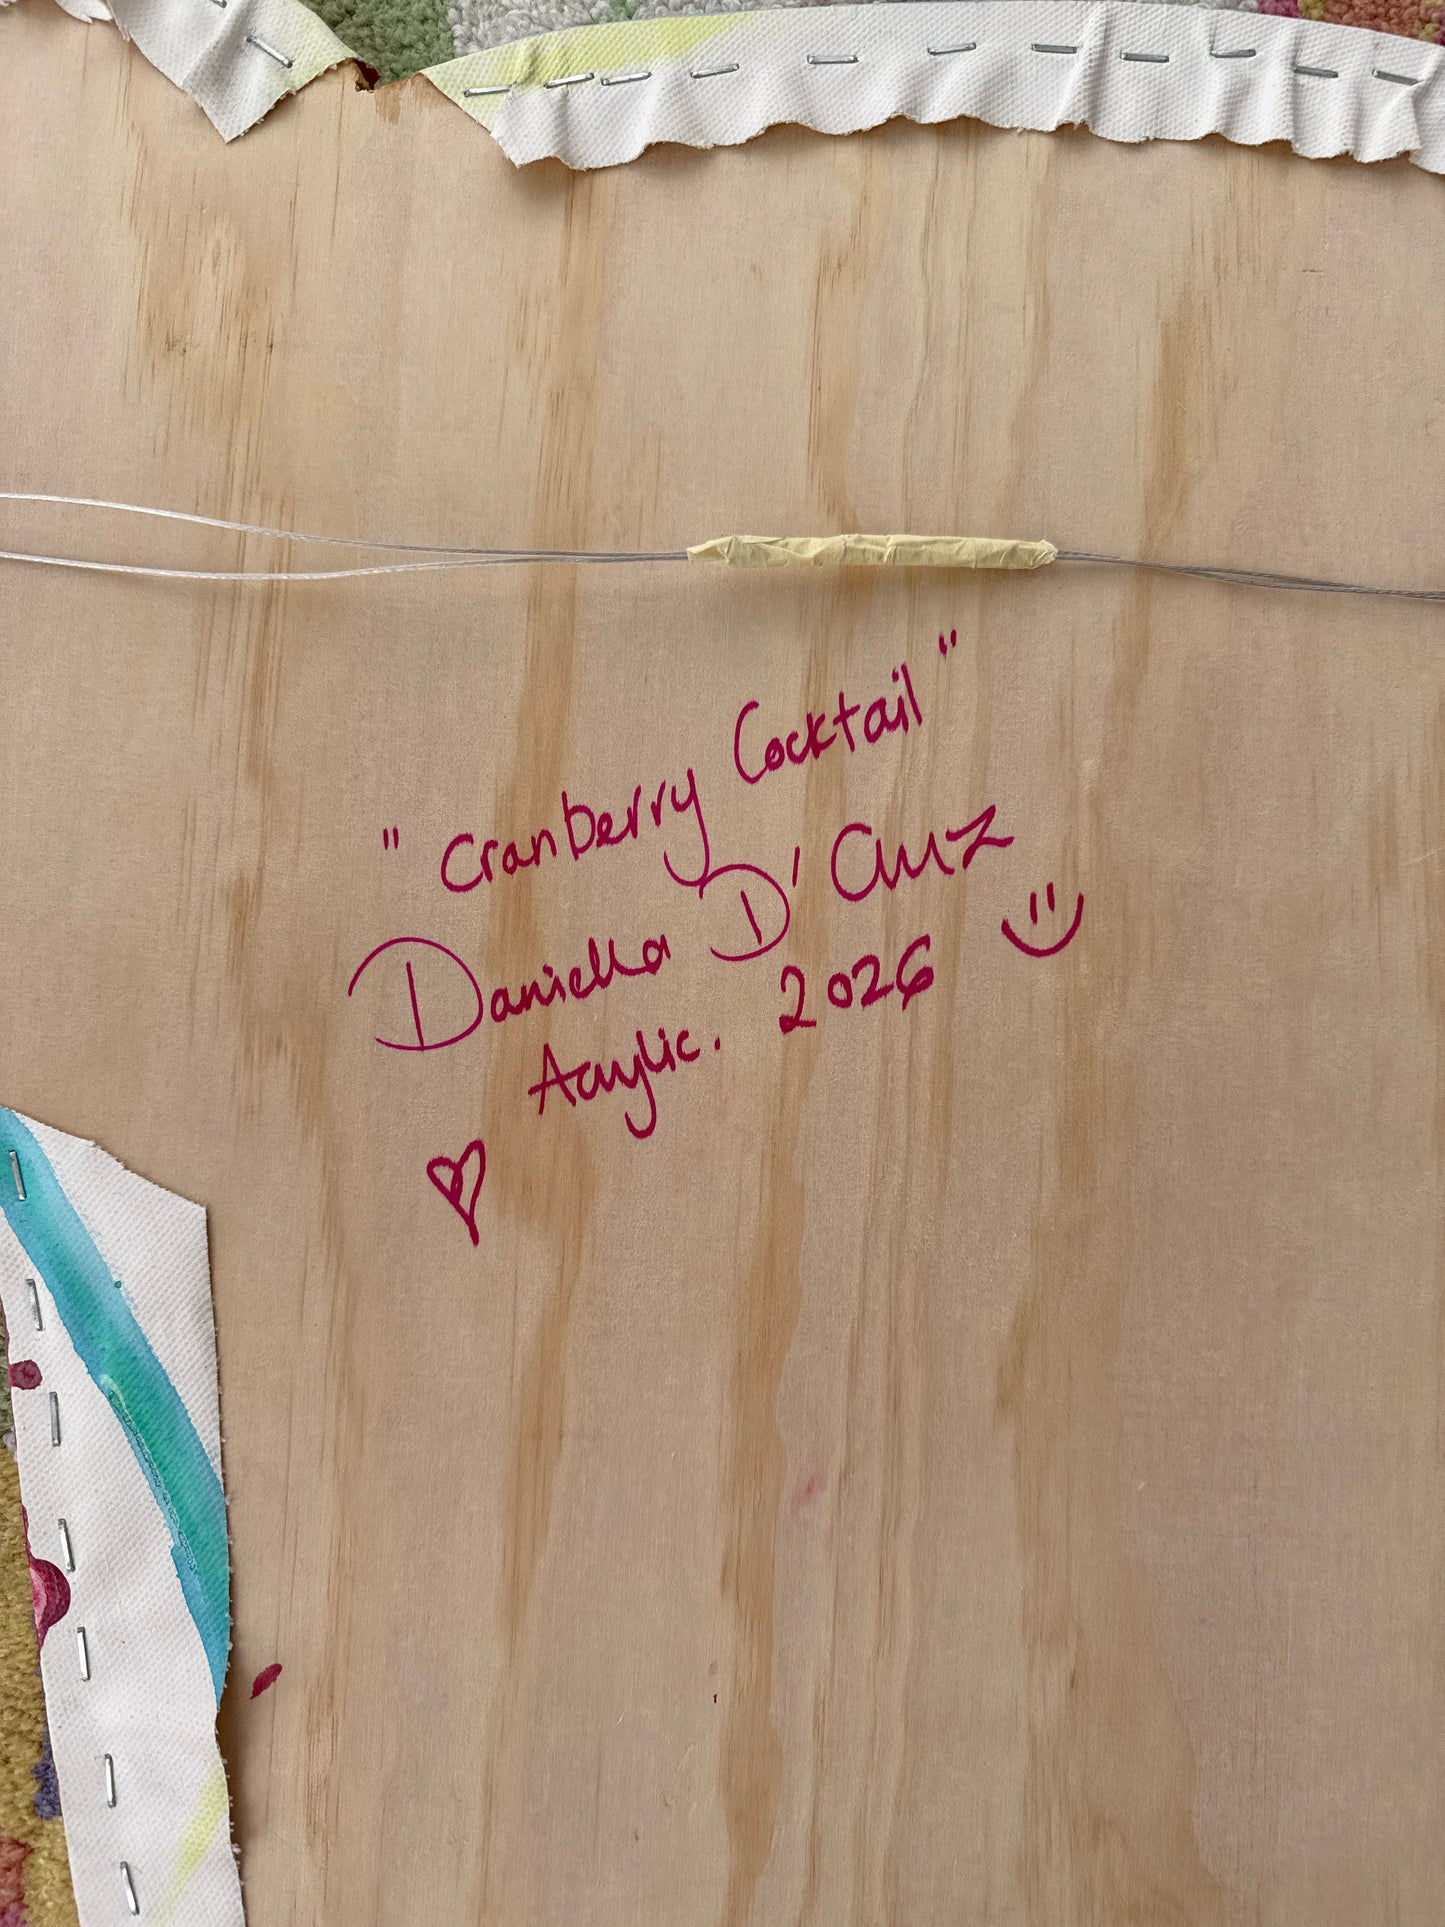 "Cranberry Cocktail"
Daniella D'Cruz
Acrylic. 2026